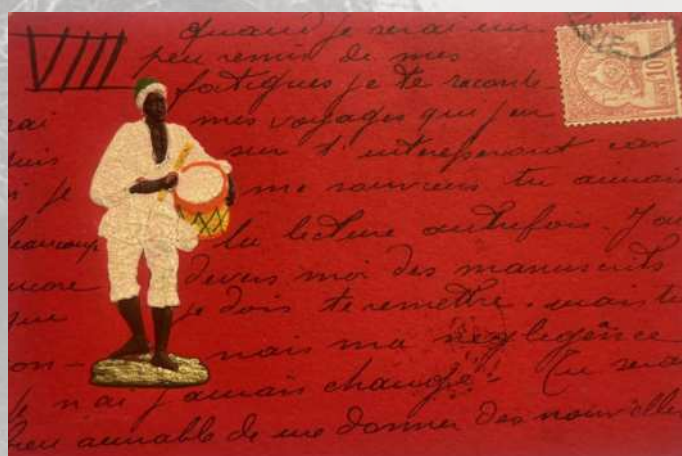 VIII
quand je serai un
peu remis de mes
fatigues je te raconte
rai mes voyages qui j'en
suis sur t'interesseront car
si je me souviens tu aimais
beaucoup la lecture autrefois. J'ai
encore devers moi des manuscrits
que je dois te remettre. mais tu
con- nais ma neglegence
je n'ai jamais changé. Tu serais
bien aimable de me donner des nouvelles
10